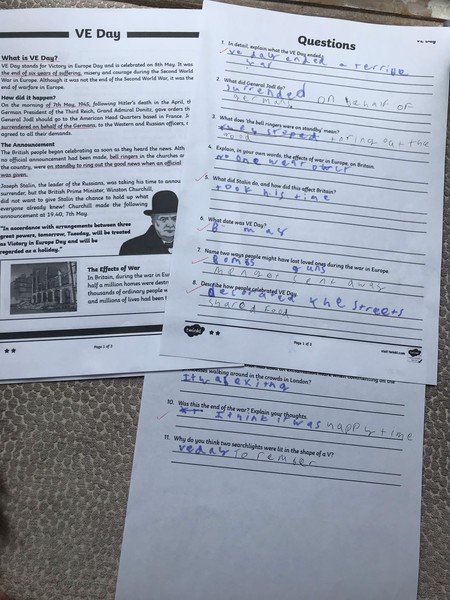 VE Day
What is VE Day?
VE Day stands for Victory in Europe Day and is celebrated on 8th May. It was
the end of six years of suffering, misery and courage during the Second World
War in Europe. Although it was not the end of the Second World War, it was the
end of warfare in Europe.
How did it happen?
On the morning of 7th May, 1945, following Hitler's death in the April, th
German President of the Third Reich, Grand Admiral, Donitz, gave orders th
General Jodl should go to the American Head Quarters based in France. J
surrendered on behalf of the Germans, to the Western and Russian officers,
agreed to all their demands.
The Announcement
The British people began celebrating as soon as they heard the news. Alth
no official announcement had been made, bell ringers in the churches ar
the country, were on standby to ring out the good news when an official
was given.
Joseph Stalin, the leader of the Russians, was taking his time to annou
surrender, but the British Prime Minister, Winston Churchill,
did not want to give Stalin the chance to hold up what
everyone already knew! Churchill made the following
announcement at 19.40, 7th May.
"In accordance with arrangements between three
great powers, tomorrow, Tuesday, will be treated
as Victory in Europe Day and will be
regarded as a holiday."
The Effects of War
In Britain, during the war in Eu
half a million homes were destro
thousands of ordinary people w
and millions of lives had been
Page 1 of 3
VE Day
Questions
1. In detail, explain what the VE Day ended.
ve day ended a terrible
war
2. What did General Jodl do?
surrended on behalf of
germans
3. What does 'the bell ringers were on standby' mean?
news
4. Explain, in your own words, the effects of war in Europe, on Britain.
no one
5. What did Stalin do, and how did this affect Britain?
took his time
6. What date was VE Day?
8 may
7. Name two ways people might have lost loved ones during the war in Europe.
Bombs guns
sent away
8. Describe how people celebrated VE Day.
the streets
shared food
twinkl
Page 2 of 3
visit twinkl.com
walking around in the crowds in London?
10. Was this the end of the war? Explain your thoughts.
I think it was happy time
11. Why do you think two searchlights were lit in the shape of a V?
ve day To rember